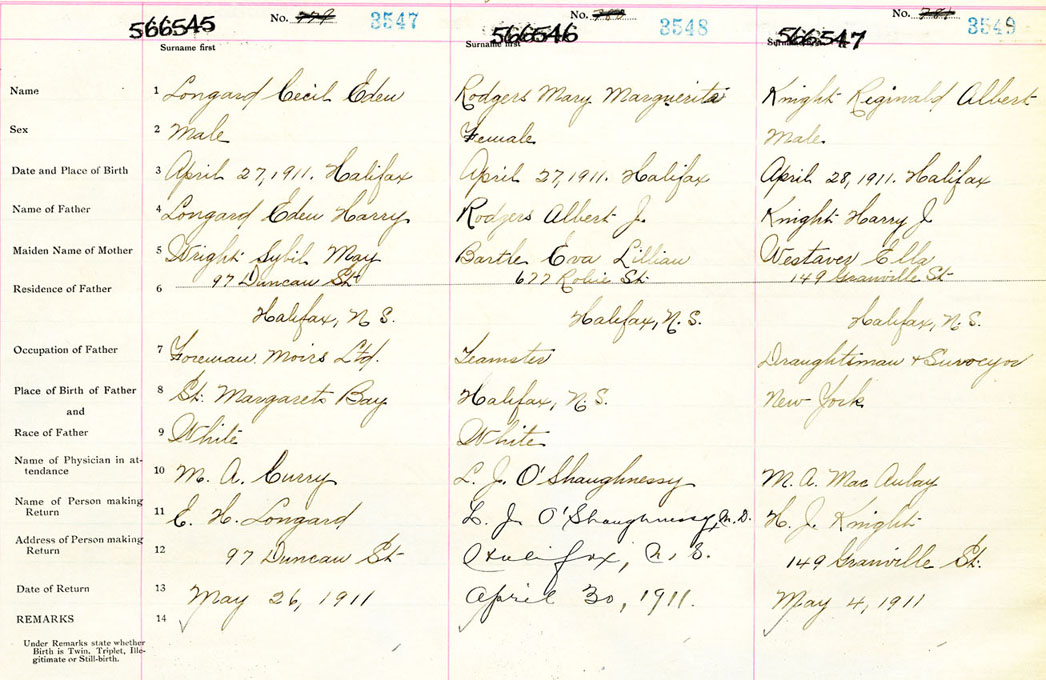 566545 No. 779 3547
566546 No. 780 3548
566547 No. 781 3549
Surname first Surname first Surname first
Name 1 Longard Cecil Eden Rodgers Mary Marguerita Knight Reginald Albert
Sex 2 Male Female Male.
Date and Place of Birth 3 April 27, 1911. Halifax April 27, 1911. Halifax April 28, 1911. Halifax
Name of Father 4 Longard Eden Harry Rodgers Albert J. Knight Harry J
Maiden Name of Mother 5 Wright Sybil May Bartle Eva Lillian Westaver Ella
97 Duncan St. 677 Robie St. 149 Granville St
Residence of Father 6
Halifax, N S. Halifax, N.S. Halifax, N.S.
Occupation of Father 7 Foreman. Moirs Ltd. Teamster Draughtsman + Surveyor
Place of Birth of Father 8 St. Margarets Bay Halifax, N.S. New York
and
Race of Father 9 White White
Name of Physician in at-
tendance 10 M. A. Curry L. J. O'Shaughnessy M. A. Mac Aulay
Name of Person making
Return 11 E. H. Longard L. J. O'Shaughnessy, M.D. H. J. Knight
Address of Person making
Return 12 97 Duncan St Halifax, N.S. 149 Granville St.
Date of Return 13 May 26, 1911 April 30, 1911. May 4, 1911
REMARKS 14
Under Remarks state whether
Birth is Twin, Triplet, Ille-
gitimate or Still-birth.